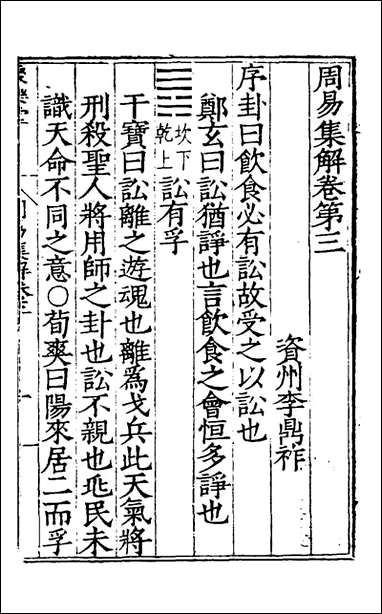 周易集解卷第三
資州李鼎祚
序卦曰飲食必有訟故受之以訟也
鄭玄曰訟猶諍也言飲食之會恒多諍也
䷅坎下乾上訟有孚
干寶曰訟離之遊魂也離為戈兵此天氣將
刑殺聖人將用師之卦也訟不親也兆民未
識天命不同之意○荀爽曰陽來居二而孚